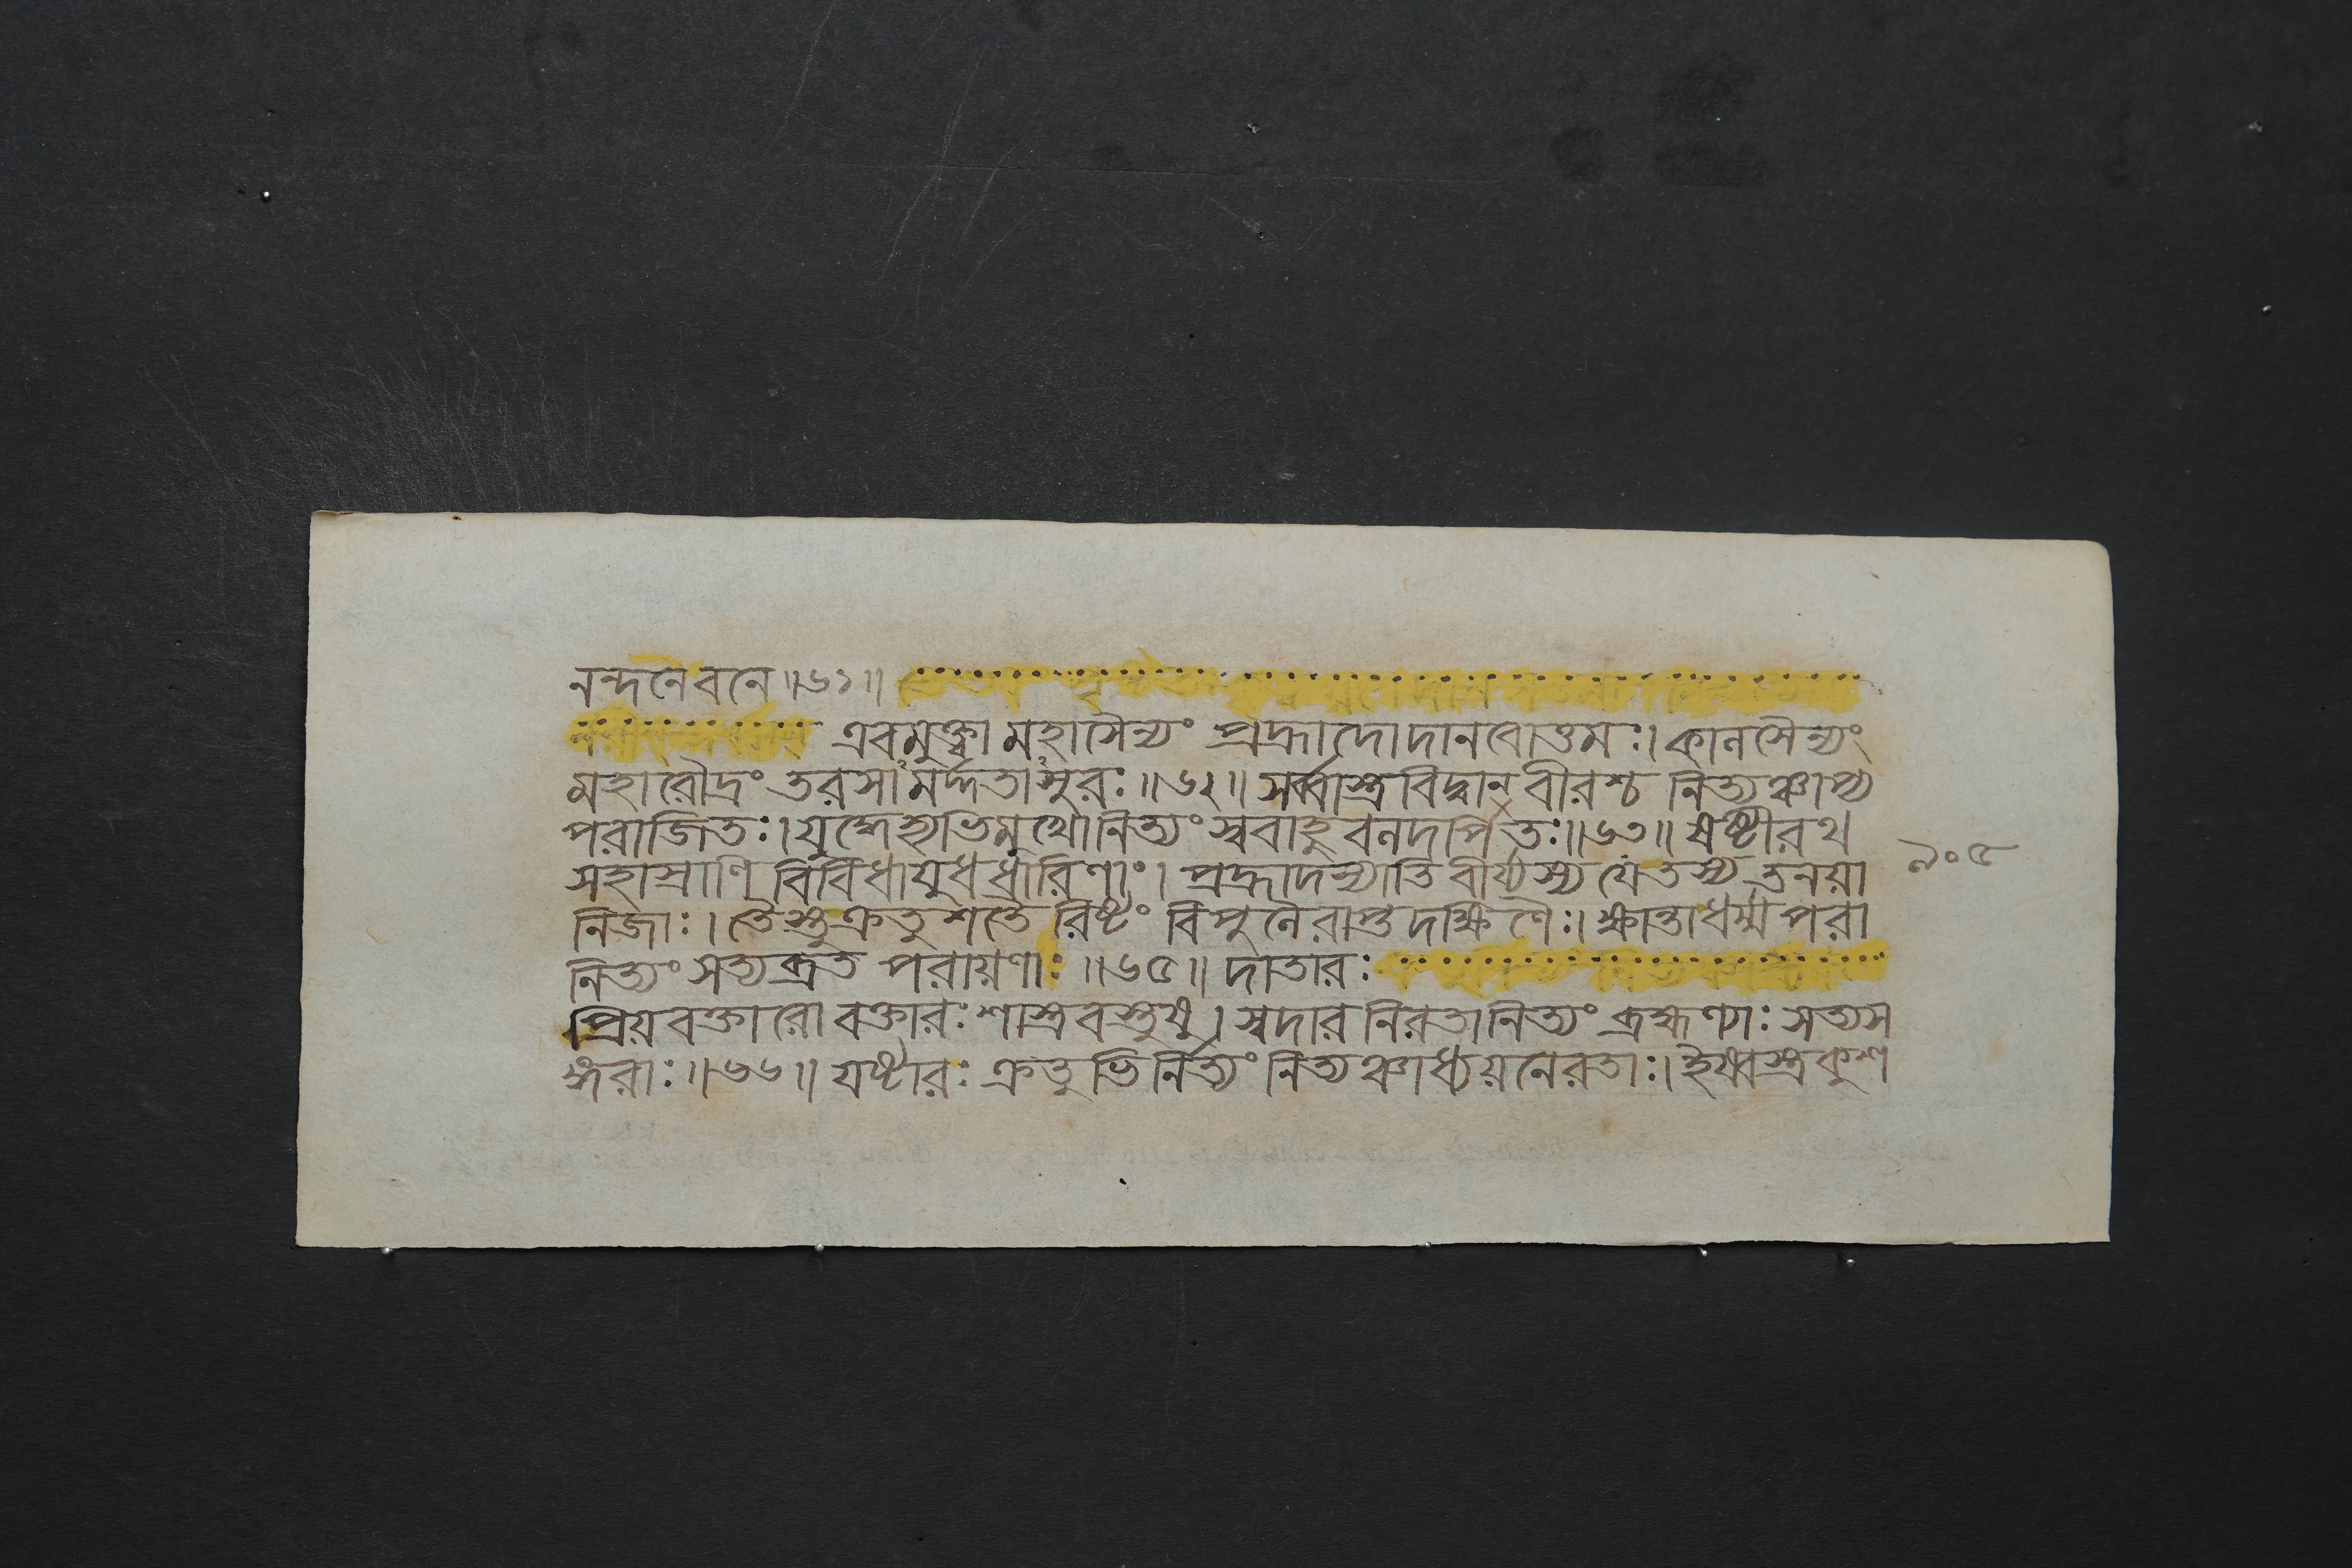 নন্দনেবনে॥৬১॥
এবমুক্ত্বা মহাসৈন্যং প্রহ্লাদোদানবোত্তমঃ। কালসৈন্যং
মহারৌদ্রং তরসাঽমর্দ্দতাঽসুরঃ॥৬২॥ সর্ব্বাস্ত্রবিদ্বান্ বীরশ্চ নিত্যঞ্চাপ্য
পরাজিতঃ। যুদ্ধেহ্যভিমুখোনিত্যং স্ববাহুবলদর্পিতঃ॥৬৩॥ ষষ্টীরথ
সহাস্রাণি বিবিধাযুধধারিণাং। প্রহ্লাদস্যাতিবীর্য্যস্য যেতস্য তনয়া
নিজাঃ। তৈস্তুক্রতুশতৈ রিষ্টং বিপুলৈরাপ্তদক্ষিণৈঃ। ক্ষান্তাধর্ম্মপরা
নিত্যং সত্যব্রত পরায়ণাঃ ॥৬৫॥ দাতারঃ
প্রিয়বক্তারো বক্তারঃ শাস্ত্রবস্তুষু। স্বদারনিরতানিত্যং ব্রহ্মণ্যাঃ সত্যস
ঙ্গরাঃ॥৬৬॥ যষ্টারঃ ক্রতুভির্নিত্যং নিত্যঞ্চাধ্যয়নেরতাঃ। ইষ্বস্ত্রকুশ
৯০৫